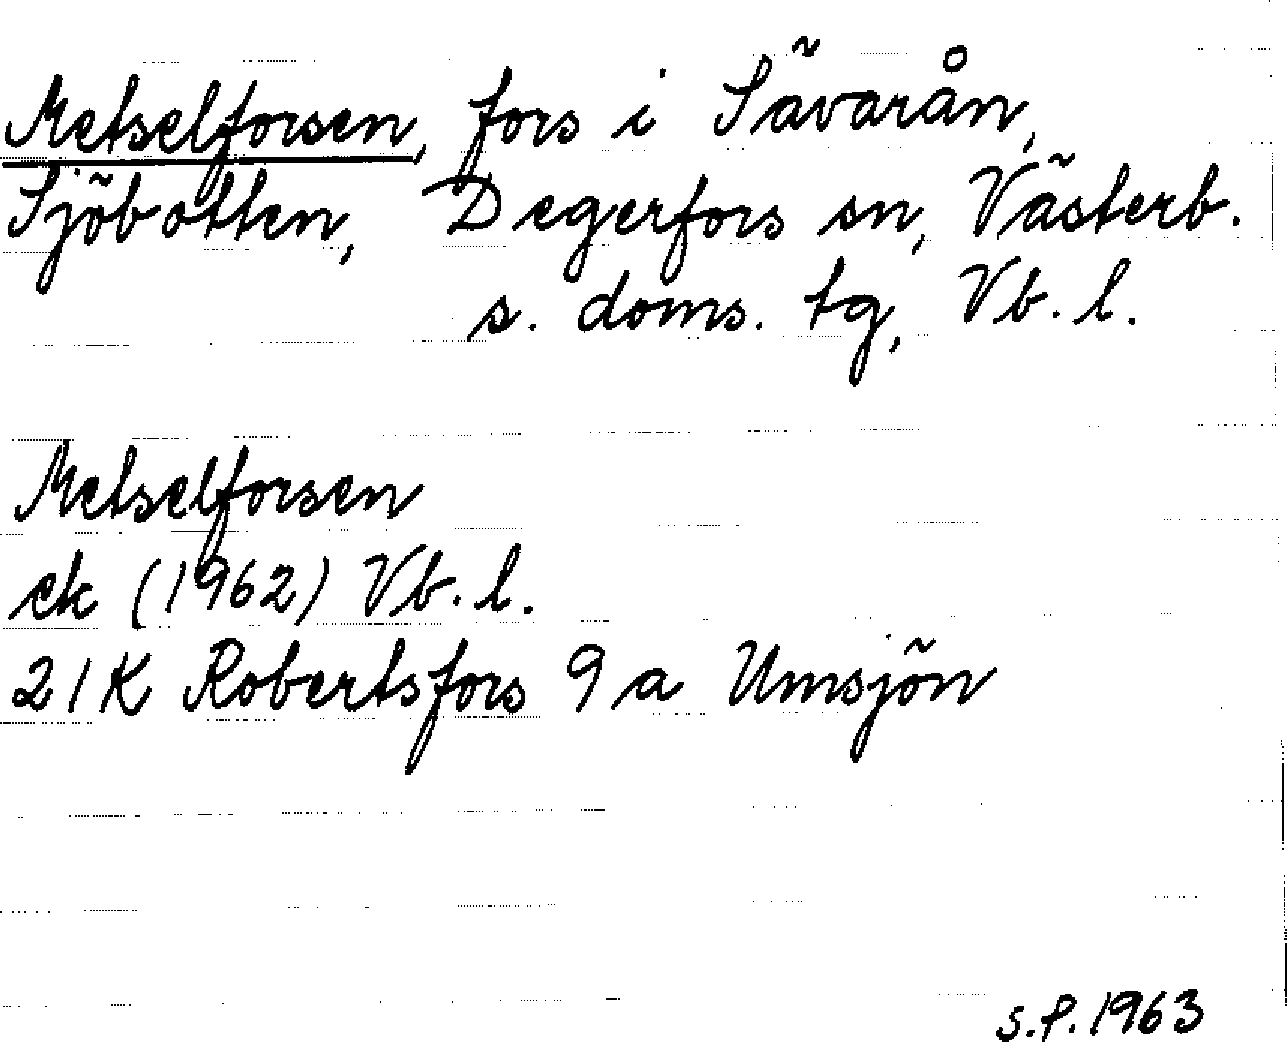 Metselforsen, fors i Sävarån,
Sjöbotten, Degerfors sn, Västerb.
s. doms. tg, Vb. l.
Metselforsen
ek (1962) Vb. l.
21K Robertsfors 9a Umsjön
S.P. 1963